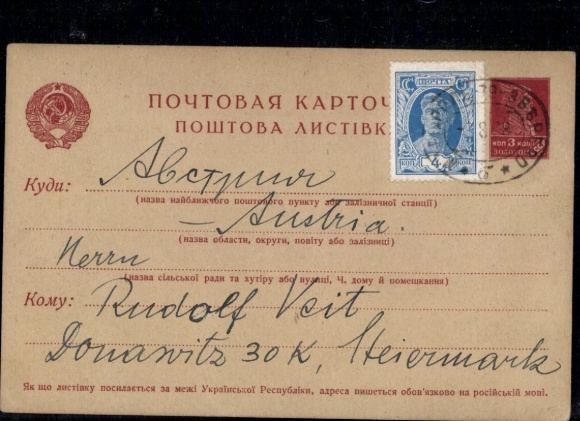 ПОЧТОВАЯ КАРТОЧ
ПОШТОВА ЛИСТІВК
ПОЧТА
КОП 3 КОП
ЗОЛОТОМ
Куди: Австрия
(назва найближчого поштового пункту або залізничної станції)
– Austria.
(назва области, округи, повіту або залізниці)
Herrn
(назва сільської ради та хутіру або вулиці, Ч. дому й помешкання)
Кому: Rudolf Veit
Donawitz 30 K, Steiermark
Як що листівку посилається за межі Української Республіки, адреса пишеться обов'язково на російській мові.